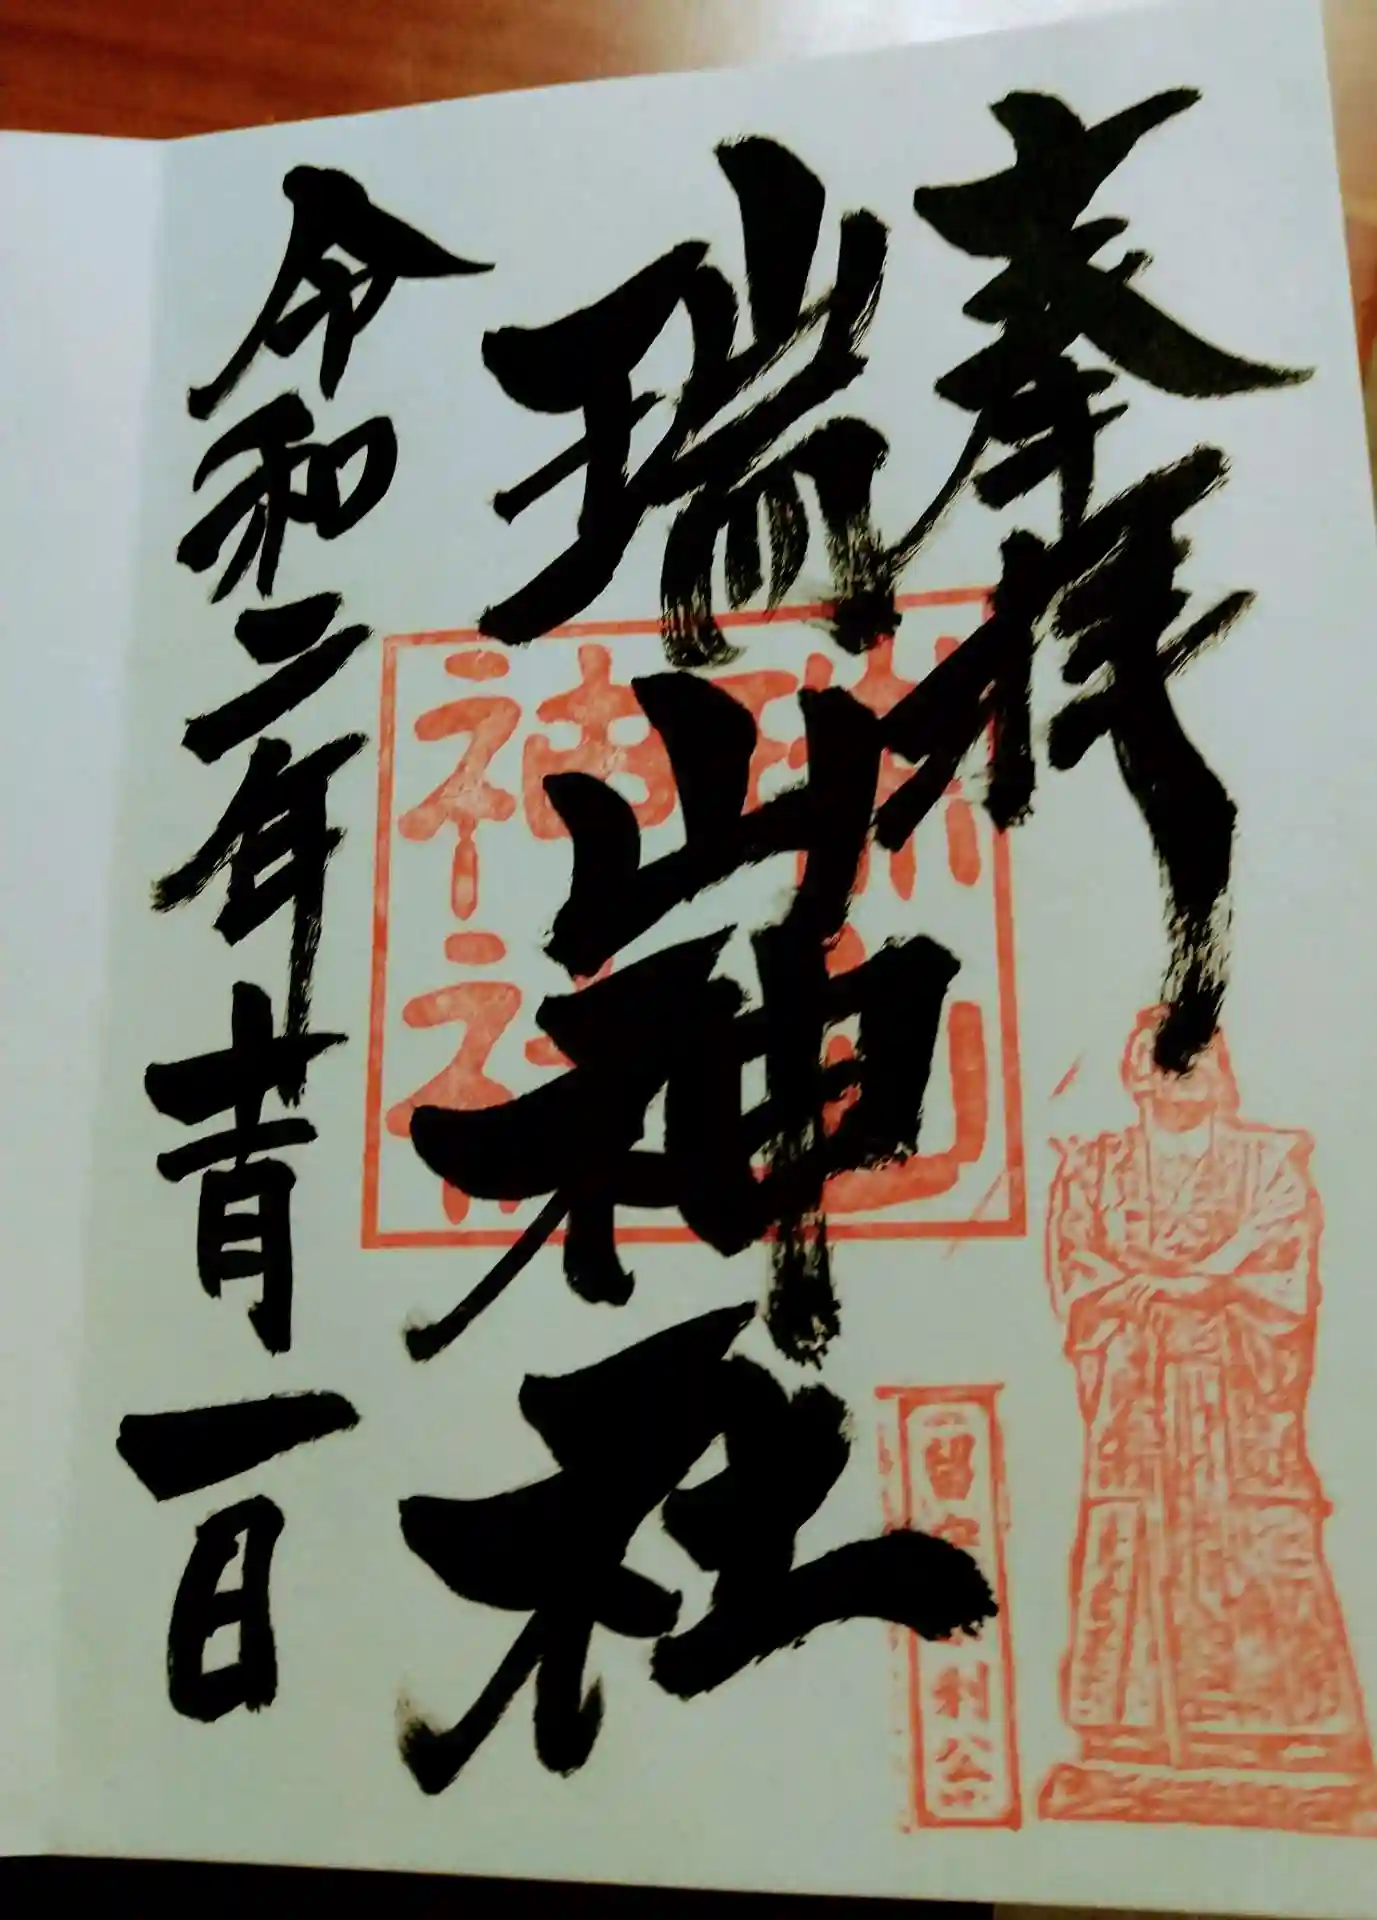 奉拝
瑞山神社
令和二年十一月一日
瑞山
神社
留守宗利公